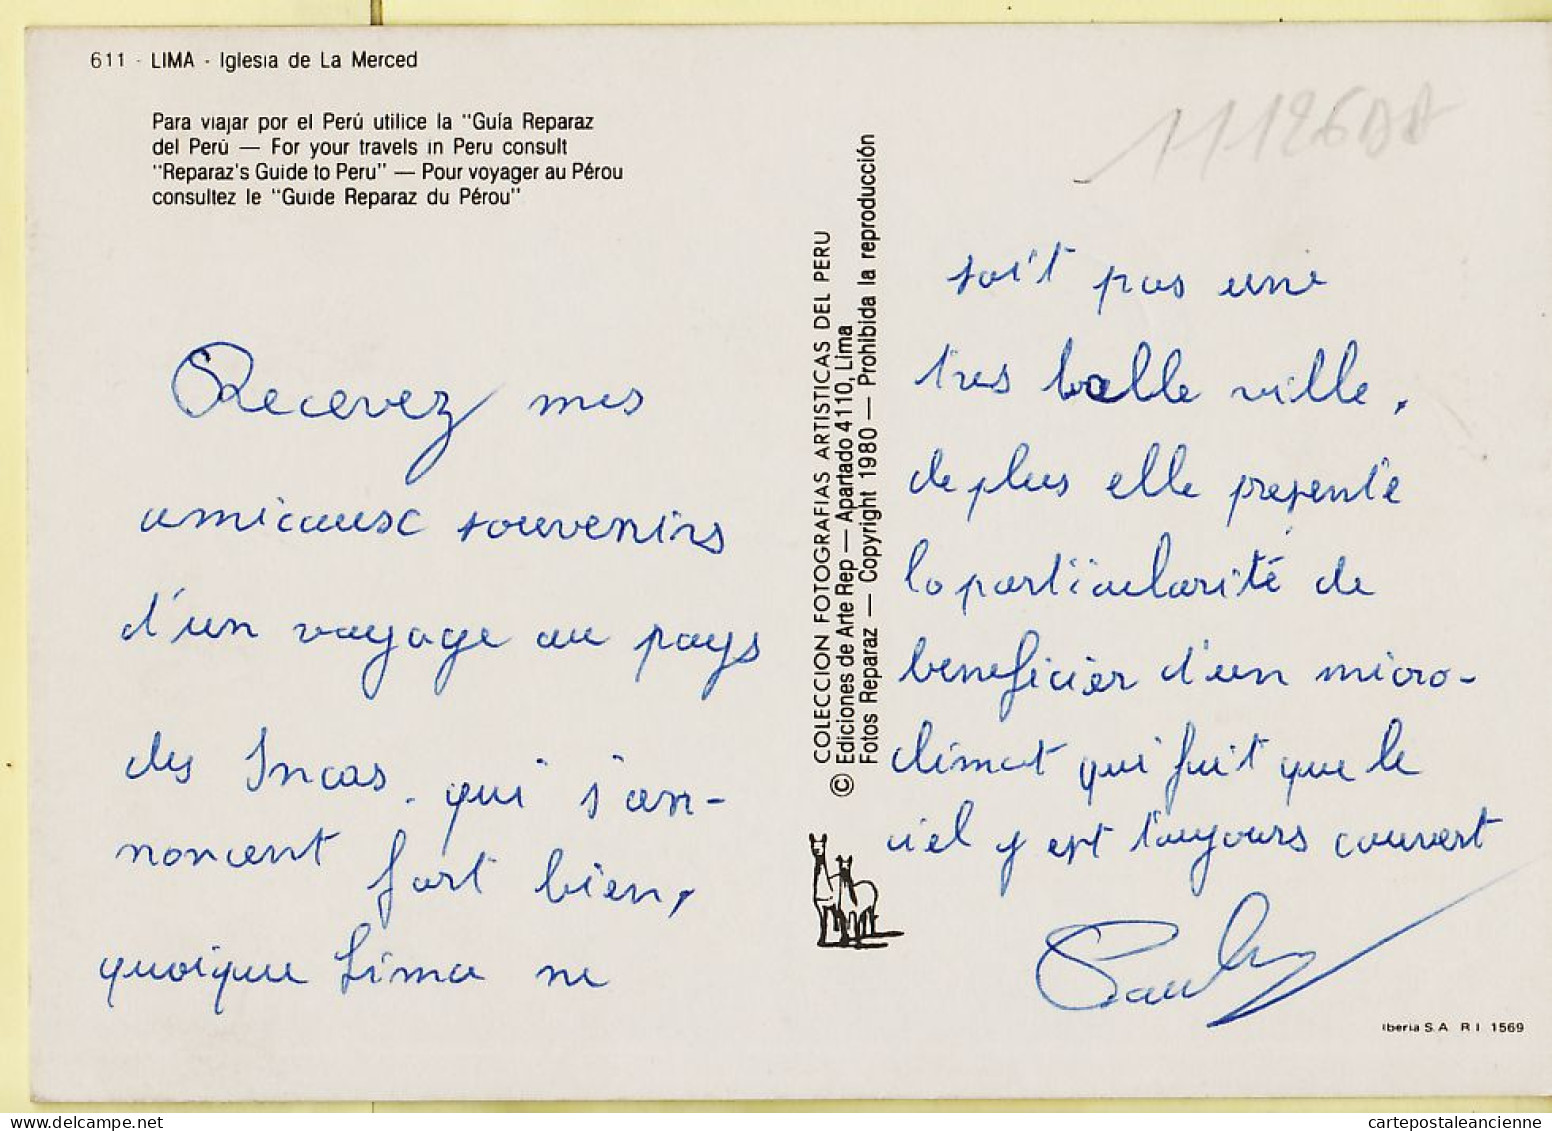 611 - LIMA - Iglesia de La Merced
Para viajar por el Perú utilice la "Guía Reparaz
del Perú — For your travels in Peru consult
"Reparaz's Guide to Peru" — Pour voyager au Pérou
consultez le "Guide Reparaz du Pérou"
Recevez mes
amicaux souvenirs
d'un voyage au pays
des Incas. qui s'an-
noncent fort bien,
quoique Lima ne
COLECCION FOTOGRAFIAS ARTISTICAS DEL PERU
© Ediciones de Arte Rep — Apartado 4110, Lima
Fotos Reparaz — Copyright 1980 — Prohibida la reproducción
soit pas une
tres belle ville.
de plus elle presente
la particularité de
beneficier d'un micro-
climat qui fait que le
ciel y est toujours couvert
Iberia S.A R I 1569
cartepostaleancienne